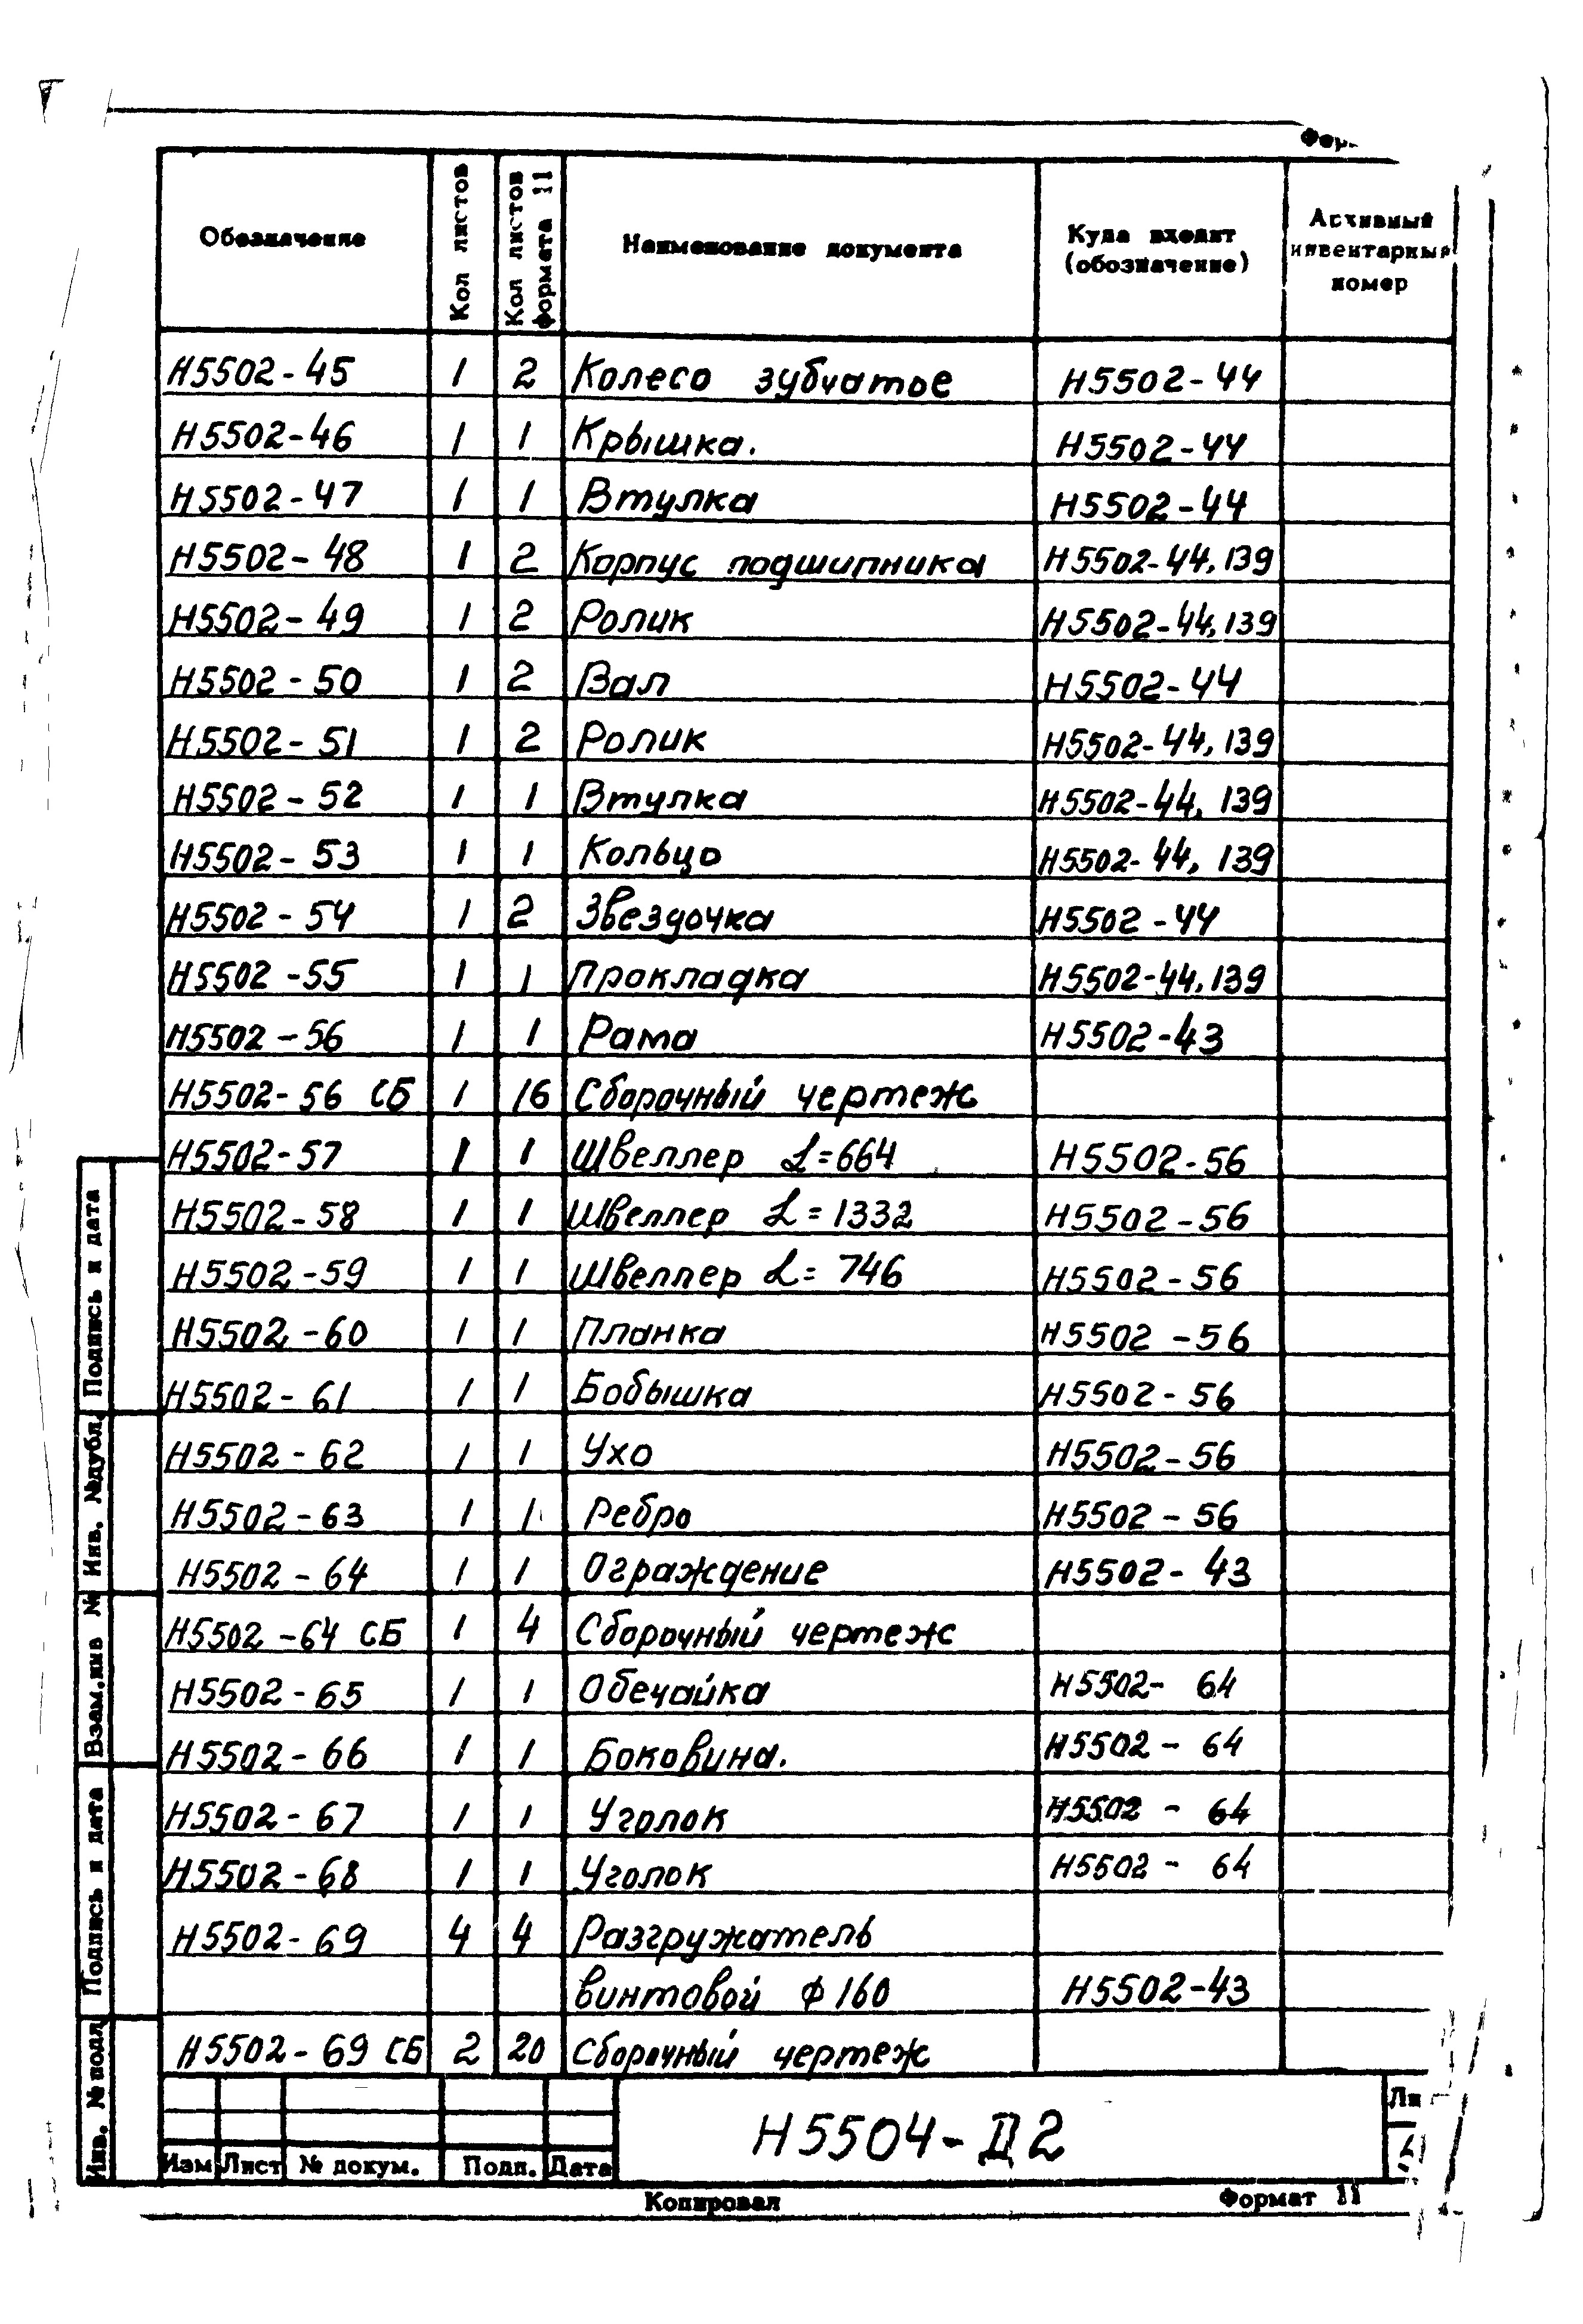 Обозначение Кол листов Кол листов формата 11 Наименование документа Куда входит (обозначение) Архивный инвентарный номер
Н5502-45 1 2 Колесо зубчатое Н5502-44
Н5502-46 1 1 Крышка. Н5502-44
Н5502-47 1 1 Втулка Н5502-44
Н5502-48 1 2 Корпус подшипника Н5502-44,139
Н5502-49 1 2 Ролик Н5502-44,139
Н5502-50 1 2 Вал Н5502-44
Н5502-51 1 2 Ролик Н5502-44,139
Н5502-52 1 1 Втулка Н5502-44, 139
Н5502-53 1 1 Кольцо Н5502-44, 139
Н5502-54 1 2 Звездочка Н5502-44
Н5502-55 1 1 Прокладка Н5502-44,139
Н5502-56 1 1 Рама Н5502-43
Н5502-56 СБ 1 16 Сборочный чертеж
Н5502-57 1 1 Швеллер L=664 Н5502-56
Н5502-58 1 1 Швеллер L=1332 Н5502-56
Н5502-59 1 1 Швеллер L=746 Н5502-56
Н5502-60 1 1 Планка Н5502-56
Н5502-61 1 1 Бобышка Н5502-56
Н5502-62 1 1 Ухо Н5502-56
Н5502-63 1 1 Ребро Н5502-56
Н5502-64 1 1 Ограждение Н5502-43
Н5502-64 СБ 1 4 Сборочный чертеж
Н5502-65 1 1 Обечайка Н5502-64
Н5502-66 1 1 Боковина. Н5502-64
Н5502-67 1 1 Уголок Н5502-64
Н5502-68 1 1 Уголок Н5502-64
Н5502-69 4 4 Разгружатель
винтовой ф160 Н5502-43
Н5502-69 СБ 2 20 Сборочный чертеж
Подпись и дата
Инв. №дубл.
Взам.инв №
Подпись и дата
Инв. №подл
Изм Лист № докум. Подп. Дата
Н5504-Д2
Копировал Формат 11